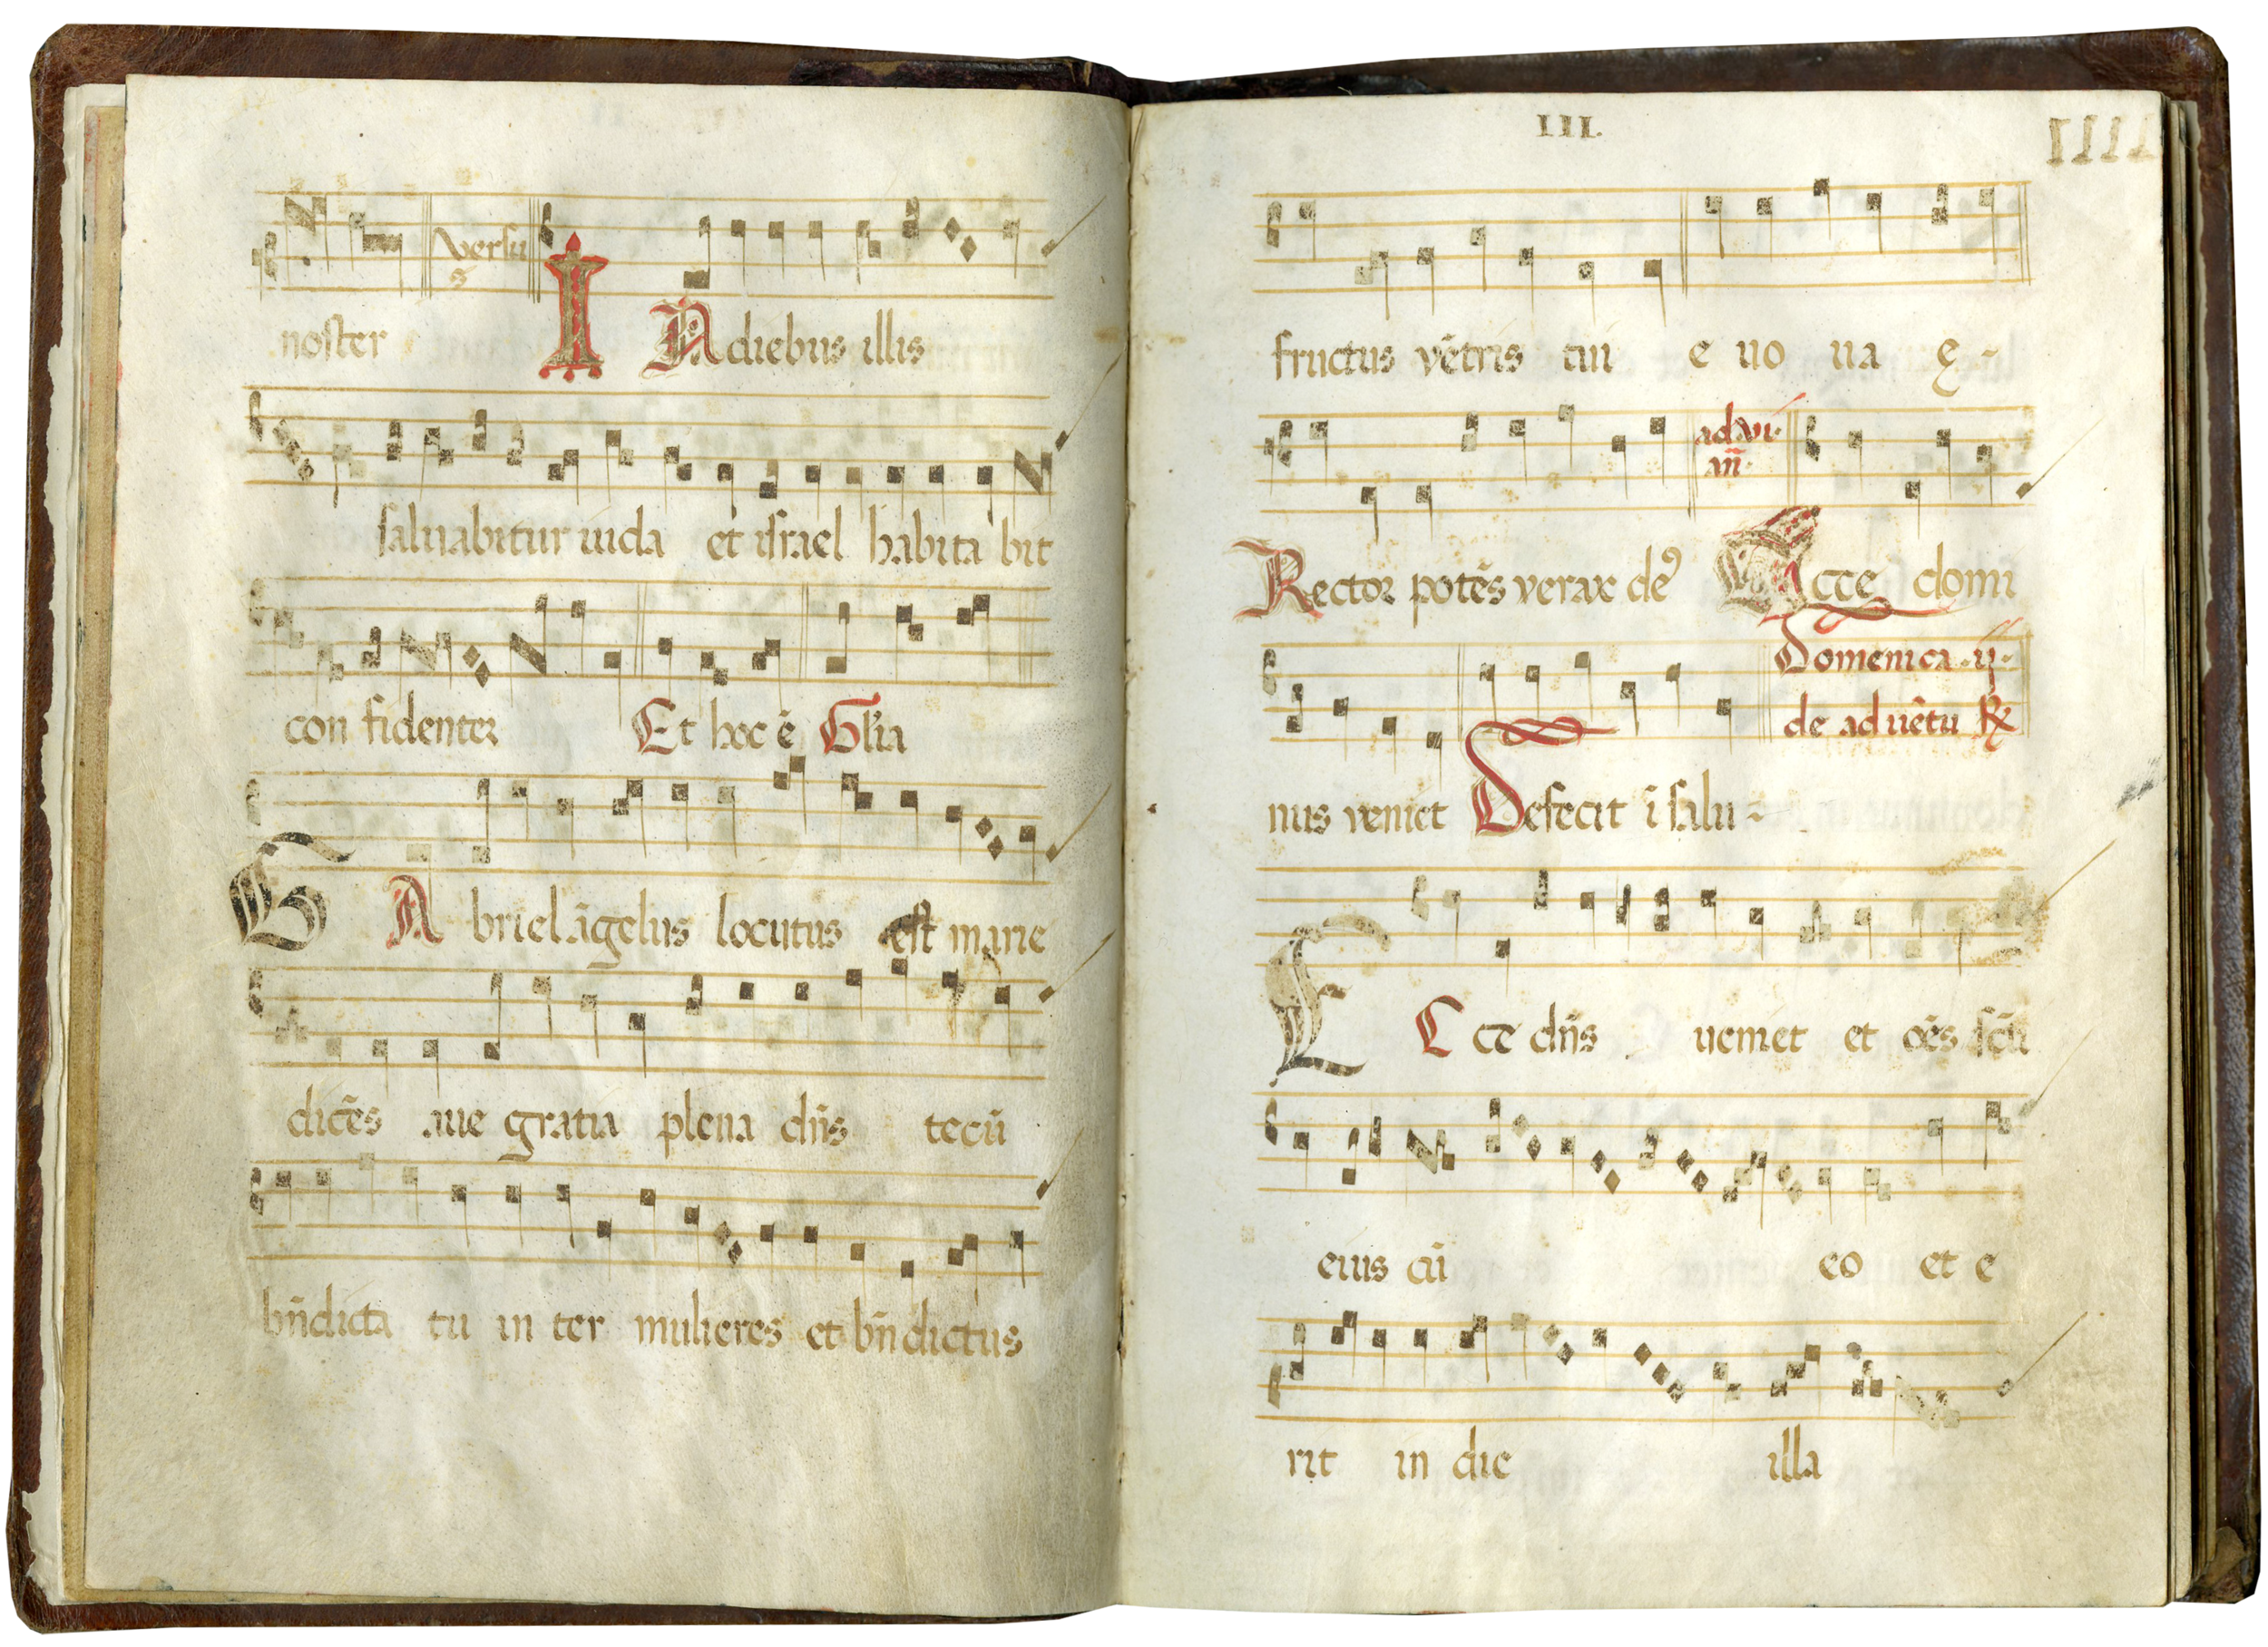 versu
s
noster I N diebus illis
saluabitur iuda et israel habita bit
con fidenter Et hoc ē Gl'ia
G A briel āgelus locutus est marie
dicēs aue gratia plena dn̄s tecū
bn̄dicta tu in ter mulieres et bn̄dictus
III.
IIII
fructus vētris tui e uo ua ę -
ad vi.
an̄.
Rector potēs verax deꝰ Ecce domi
Domenica .ij.
de aduētu ℟
nus veniet Defecit ī salu -
E C ce dn̄s ueniet et oēs scī
eius cū eo et e
rit in die illa